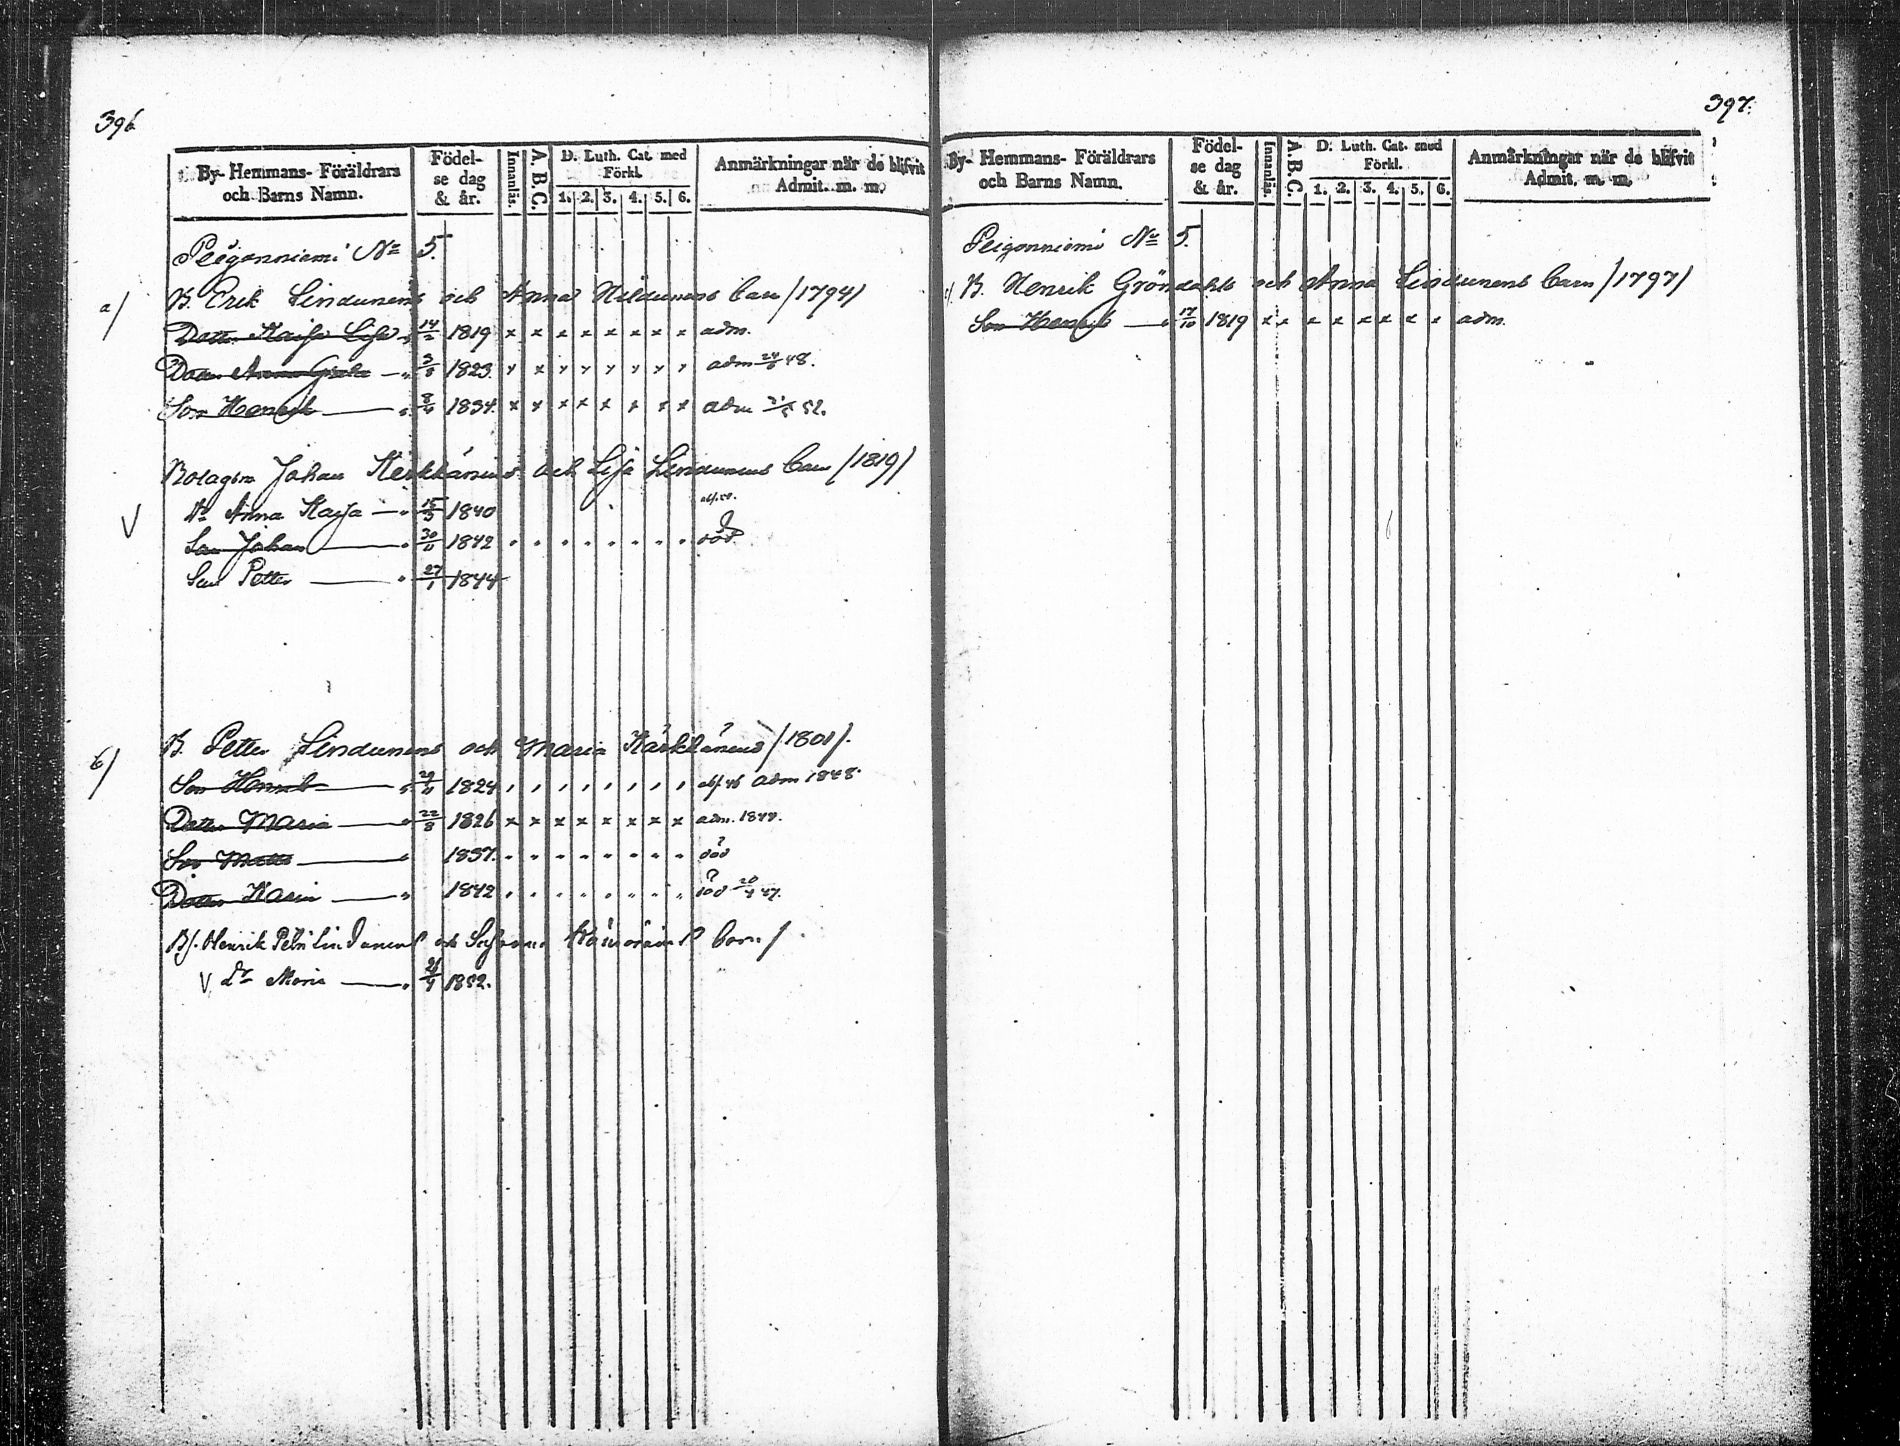 396
By- Hemmans- Föräldrars och Barns Namn. Födel- se dag & år. Innanläs. A.B.C. D. Luth. Cat. med Förkl. 1. 2. 3. 4. 5. 6. Anmärkningar när de blifvit Admit. m. m.
Peigonniemi No 5.
a/ B. Erik Lindunens och Anna Barn /1794/
Dotter Kaisa Lisa 14/2 1819 x x x x x x x x adm.
Dotter Anna Greta 1823. adm 48.
Son Henrik 8/4 1834. x x x x x x x x adm 52.
Bolagsm Johan och Lisa Lindunens Barn /1819/
V Dr Anna Kaisa 15/3 1840
Son Johan 30/11 1842 död
Son Petter 27/1 1844
b/ B. Petter Lindunens och Maria Härkkänens /1801/.
Son Henrik 29/11 1824 adm 1848.
Dotter Maria 22/8 1826 x x x x x x x x adm. 1844.
Son Matts 1837. död
Dotter Karin 1842 död 47.
Henrik Lindunens och Barn /
V dr Maria 1852.
397.
By- Hemmans- Föräldrars och Barns Namn. Födel- se dag & år. Innanläs. A.B.C. D. Luth. Cat. med Förkl. 1. 2. 3. 4. 5. 6. Anmärkningar när de blifvit Admit. m. m.
Peigonniemi No 5.
B. Henrik Gröndahls och Anna Lindunens Barn /1797/
Son Henrik 17/10 1819 x x x x x x x x adm.